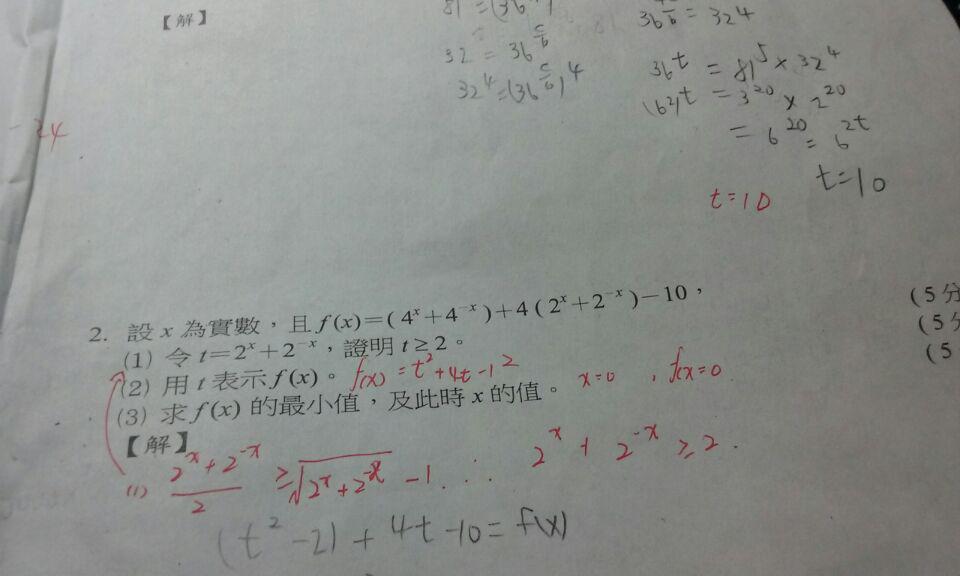 【解】
32 = 36^{5/6}
32^4 = (36^{5/6})^4
= 32^4
36^t = 81^5 × 32^4
(6^2)^t = 3^{20} × 2^{20}
= 6^{20} = 6^{2t}
t=10
t=10
-24
2. 設 x 為實數，且 f(x)=(4^x+4^{-x})+4(2^x+2^{-x})-10，
(5分
(1) 令 t=2^x+2^{-x}，證明 t≥2。
(5分
(2) 用 t 表示 f(x)。 f(x) = t^2+4t-12
(5
(3) 求 f(x) 的最小值，及此時 x 的值。 x=0 , f(x=0
【解】
(1) \frac{2^x+2^{-x}}{2} ≥ \sqrt{2^x+2^{-x}} -1 ∴ 2^x + 2^{-x} ≥ 2.
(t^2-2)+4t-10=f(x)